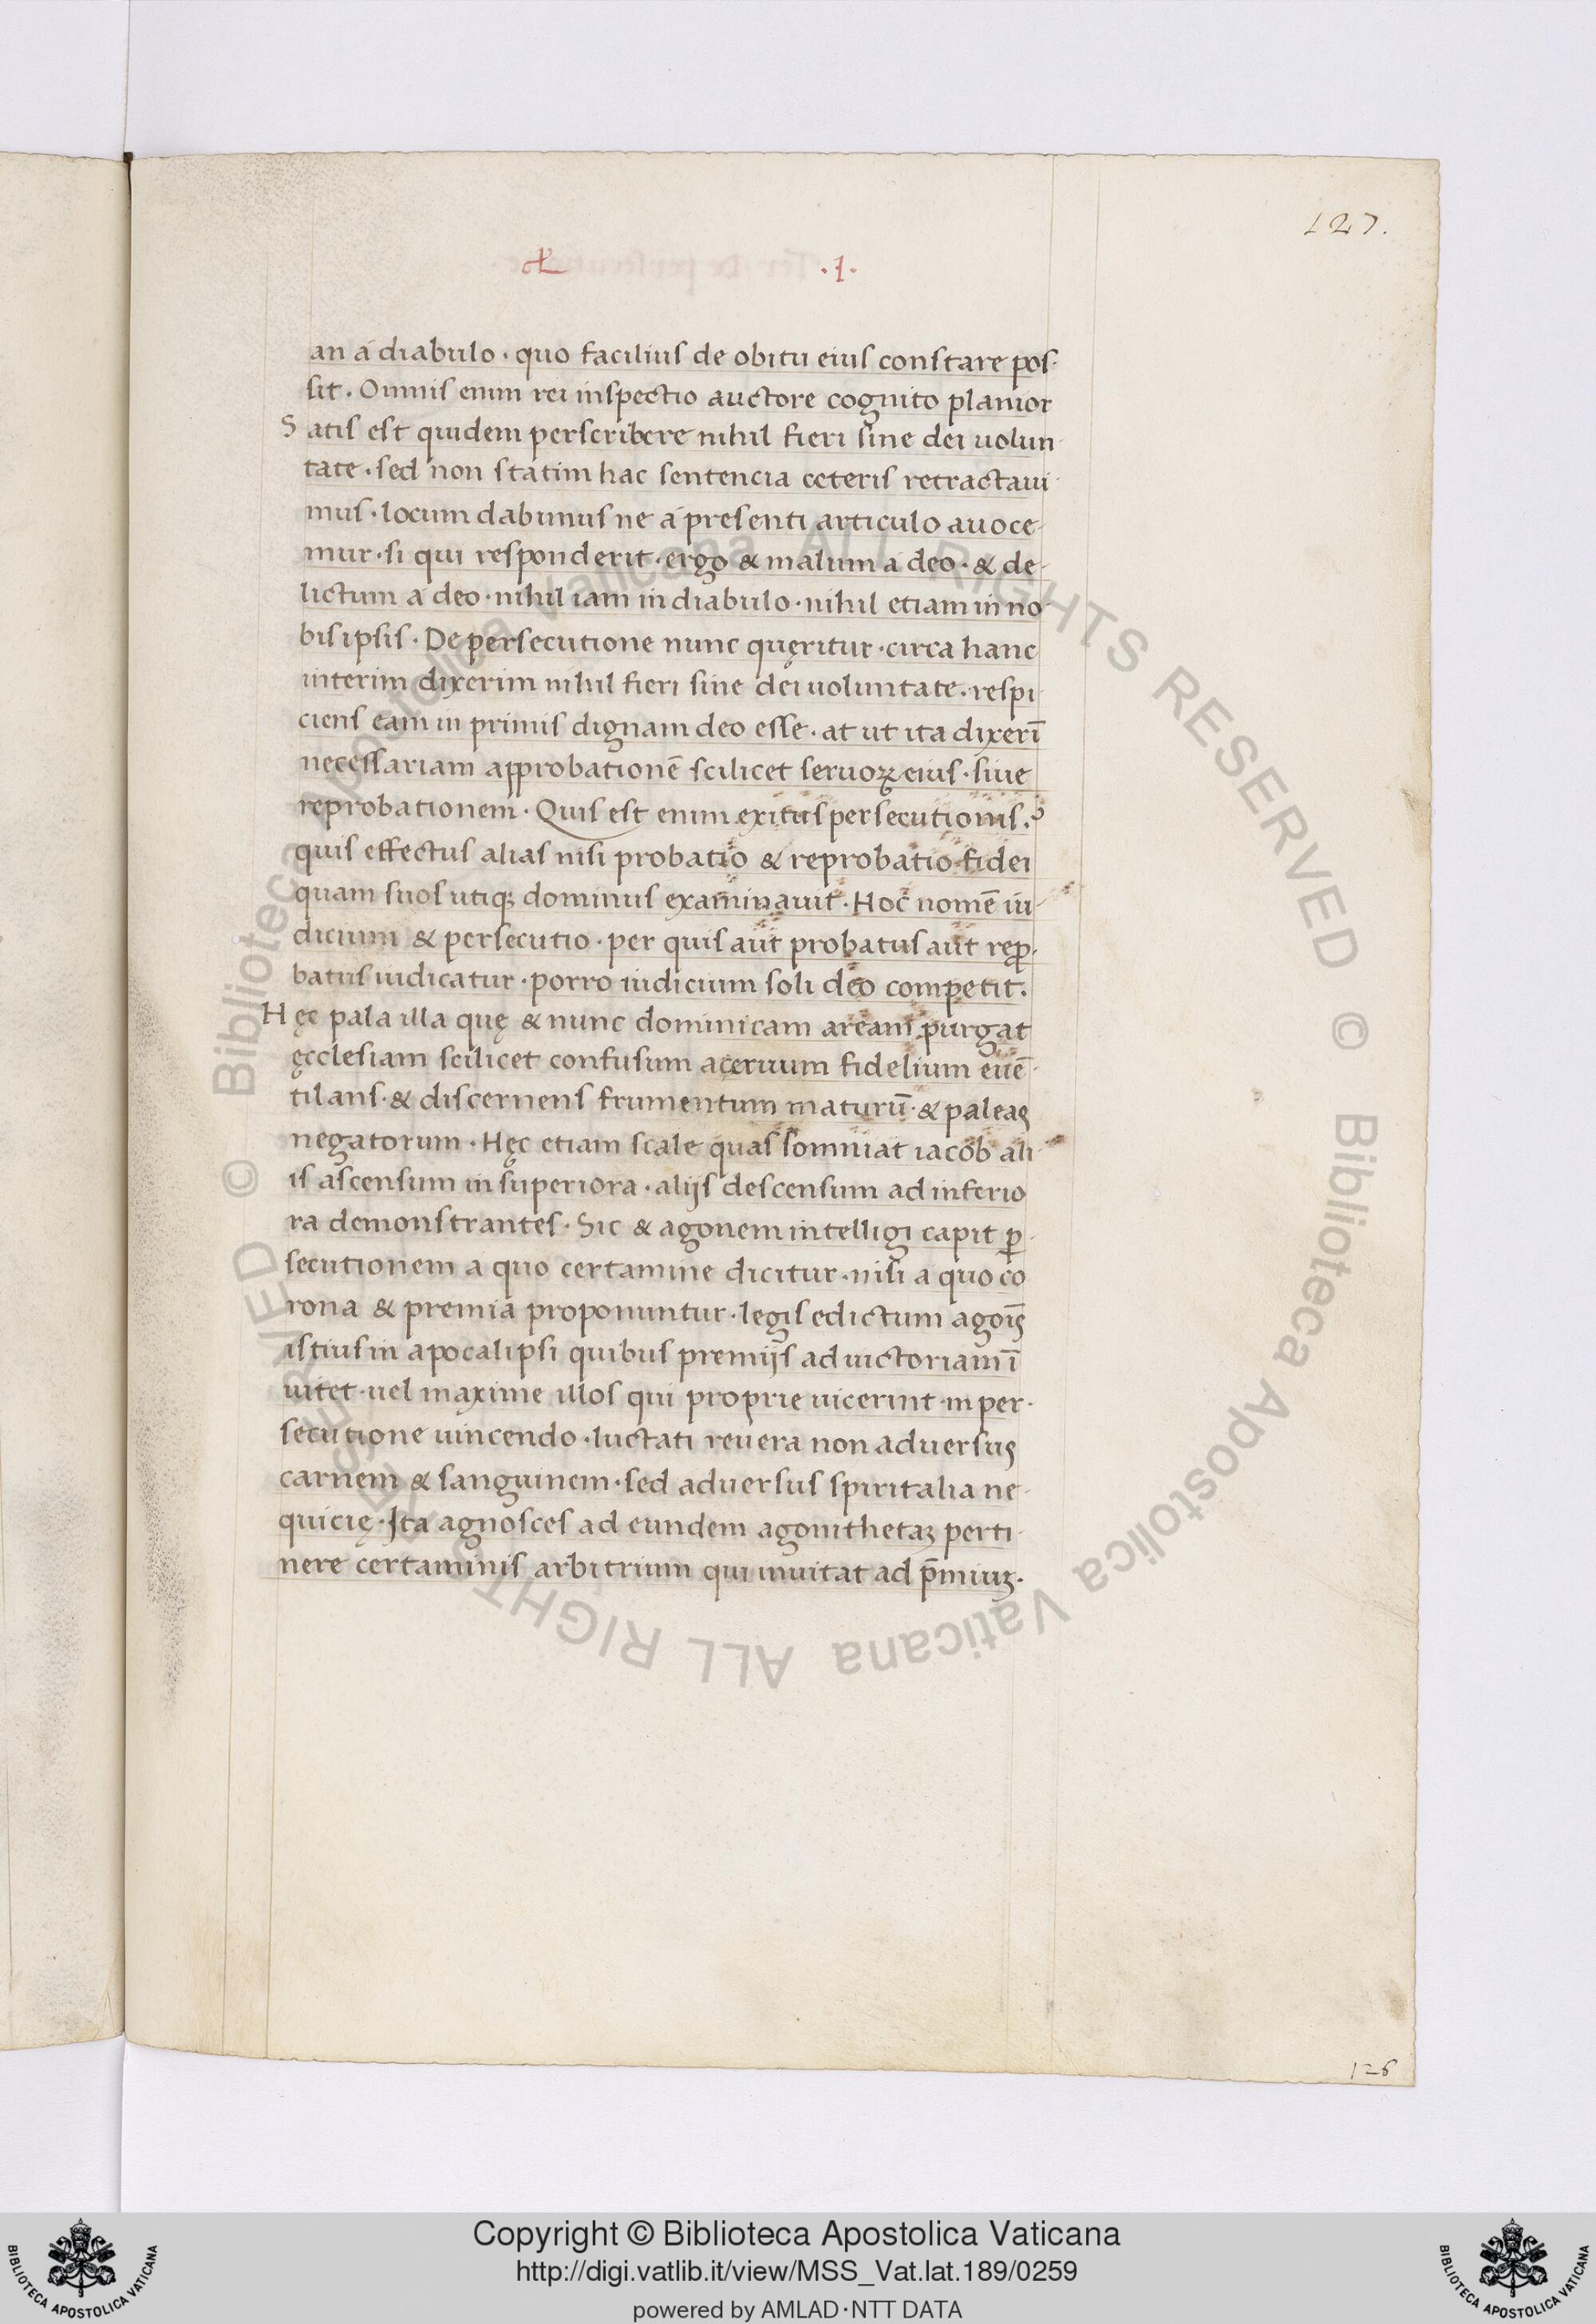 127.
.I.
an a diabulo · quo facilius de obitu eius constare pos-
sit . Omnis enim rei inspectio auctore cognito planior
Satis est quidem perscribere nihil fieri sine dei volun-
tate · sed non statim hac sentencia ceteris retractavi-
mus · locum dabimus ne a presenti articulo avoce-
mur · si qui responderit · ergo & malum a deo · & de-
lictum a deo · nihil iam in diabulo · nihil etiam in no-
bis ipsis · De persecutione nunc quęritur · circa hanc
interim dixerim nihil fieri sine dei voluntate · respi-
ciens eam in primis dignam deo esse · at ut ita dixerī
necessariam approbationē scilicet seruoꝝ eius · siue
reprobationem · Quis est enim exitus persecutionis ?
quis effectus alias nisi probatio & reprobatio fidei
quam suos utiqꝫ dominus examinauit · Hoc nomē iu-
dicium & persecutio · per quis aut probatus aut repro-
batus iudicatur · porro iudicium soli deo competit .
Hęc pala illa quę & nunc dominicam aream purgat
ęcclesiam scilicet confusum aceruum fidelium euē-
tilans · & discernens frumentum maturū · & paleas
negatorum · Hęc etiam scale quas somniat iacob ali-
is ascensum in superiora · alijs descensum ad inferio
ra demonstrantes · Sic & agonem intelligi capit ꝑ-
secutionem a quo certamine dicitur · nisi a quo co
rona & premia proponuntur · legis edictum agoīs
istius in apocalipsi quibus premijs ad uictoriam ī
uitet · uel maxime illos qui proprie uicerint in per-
secutione uincendo · luctati reuera non aduersus
carnem & sanguinem · sed aduersus spiritalia ne-
quicię · Ita agnosces ad eundem agonithetaꝫ perti-
nere certaminis arbitrium qui inuitat ad p̄miuꝫ .
126
© Biblioteca Apostolica Vaticana ALL RIGHTS RESERVED © Biblioteca Apostolica Vaticana ALL RIGHTS RESERVED
Copyright © Biblioteca Apostolica Vaticana
http://digi.vatlib.it/view/MSS_Vat.lat.189/0259
powered by AMLAD·NTT DATA
BIBLIOTECA APOSTOLICA VATICANA
BIBLIOTECA APOSTOLICA VATICANA